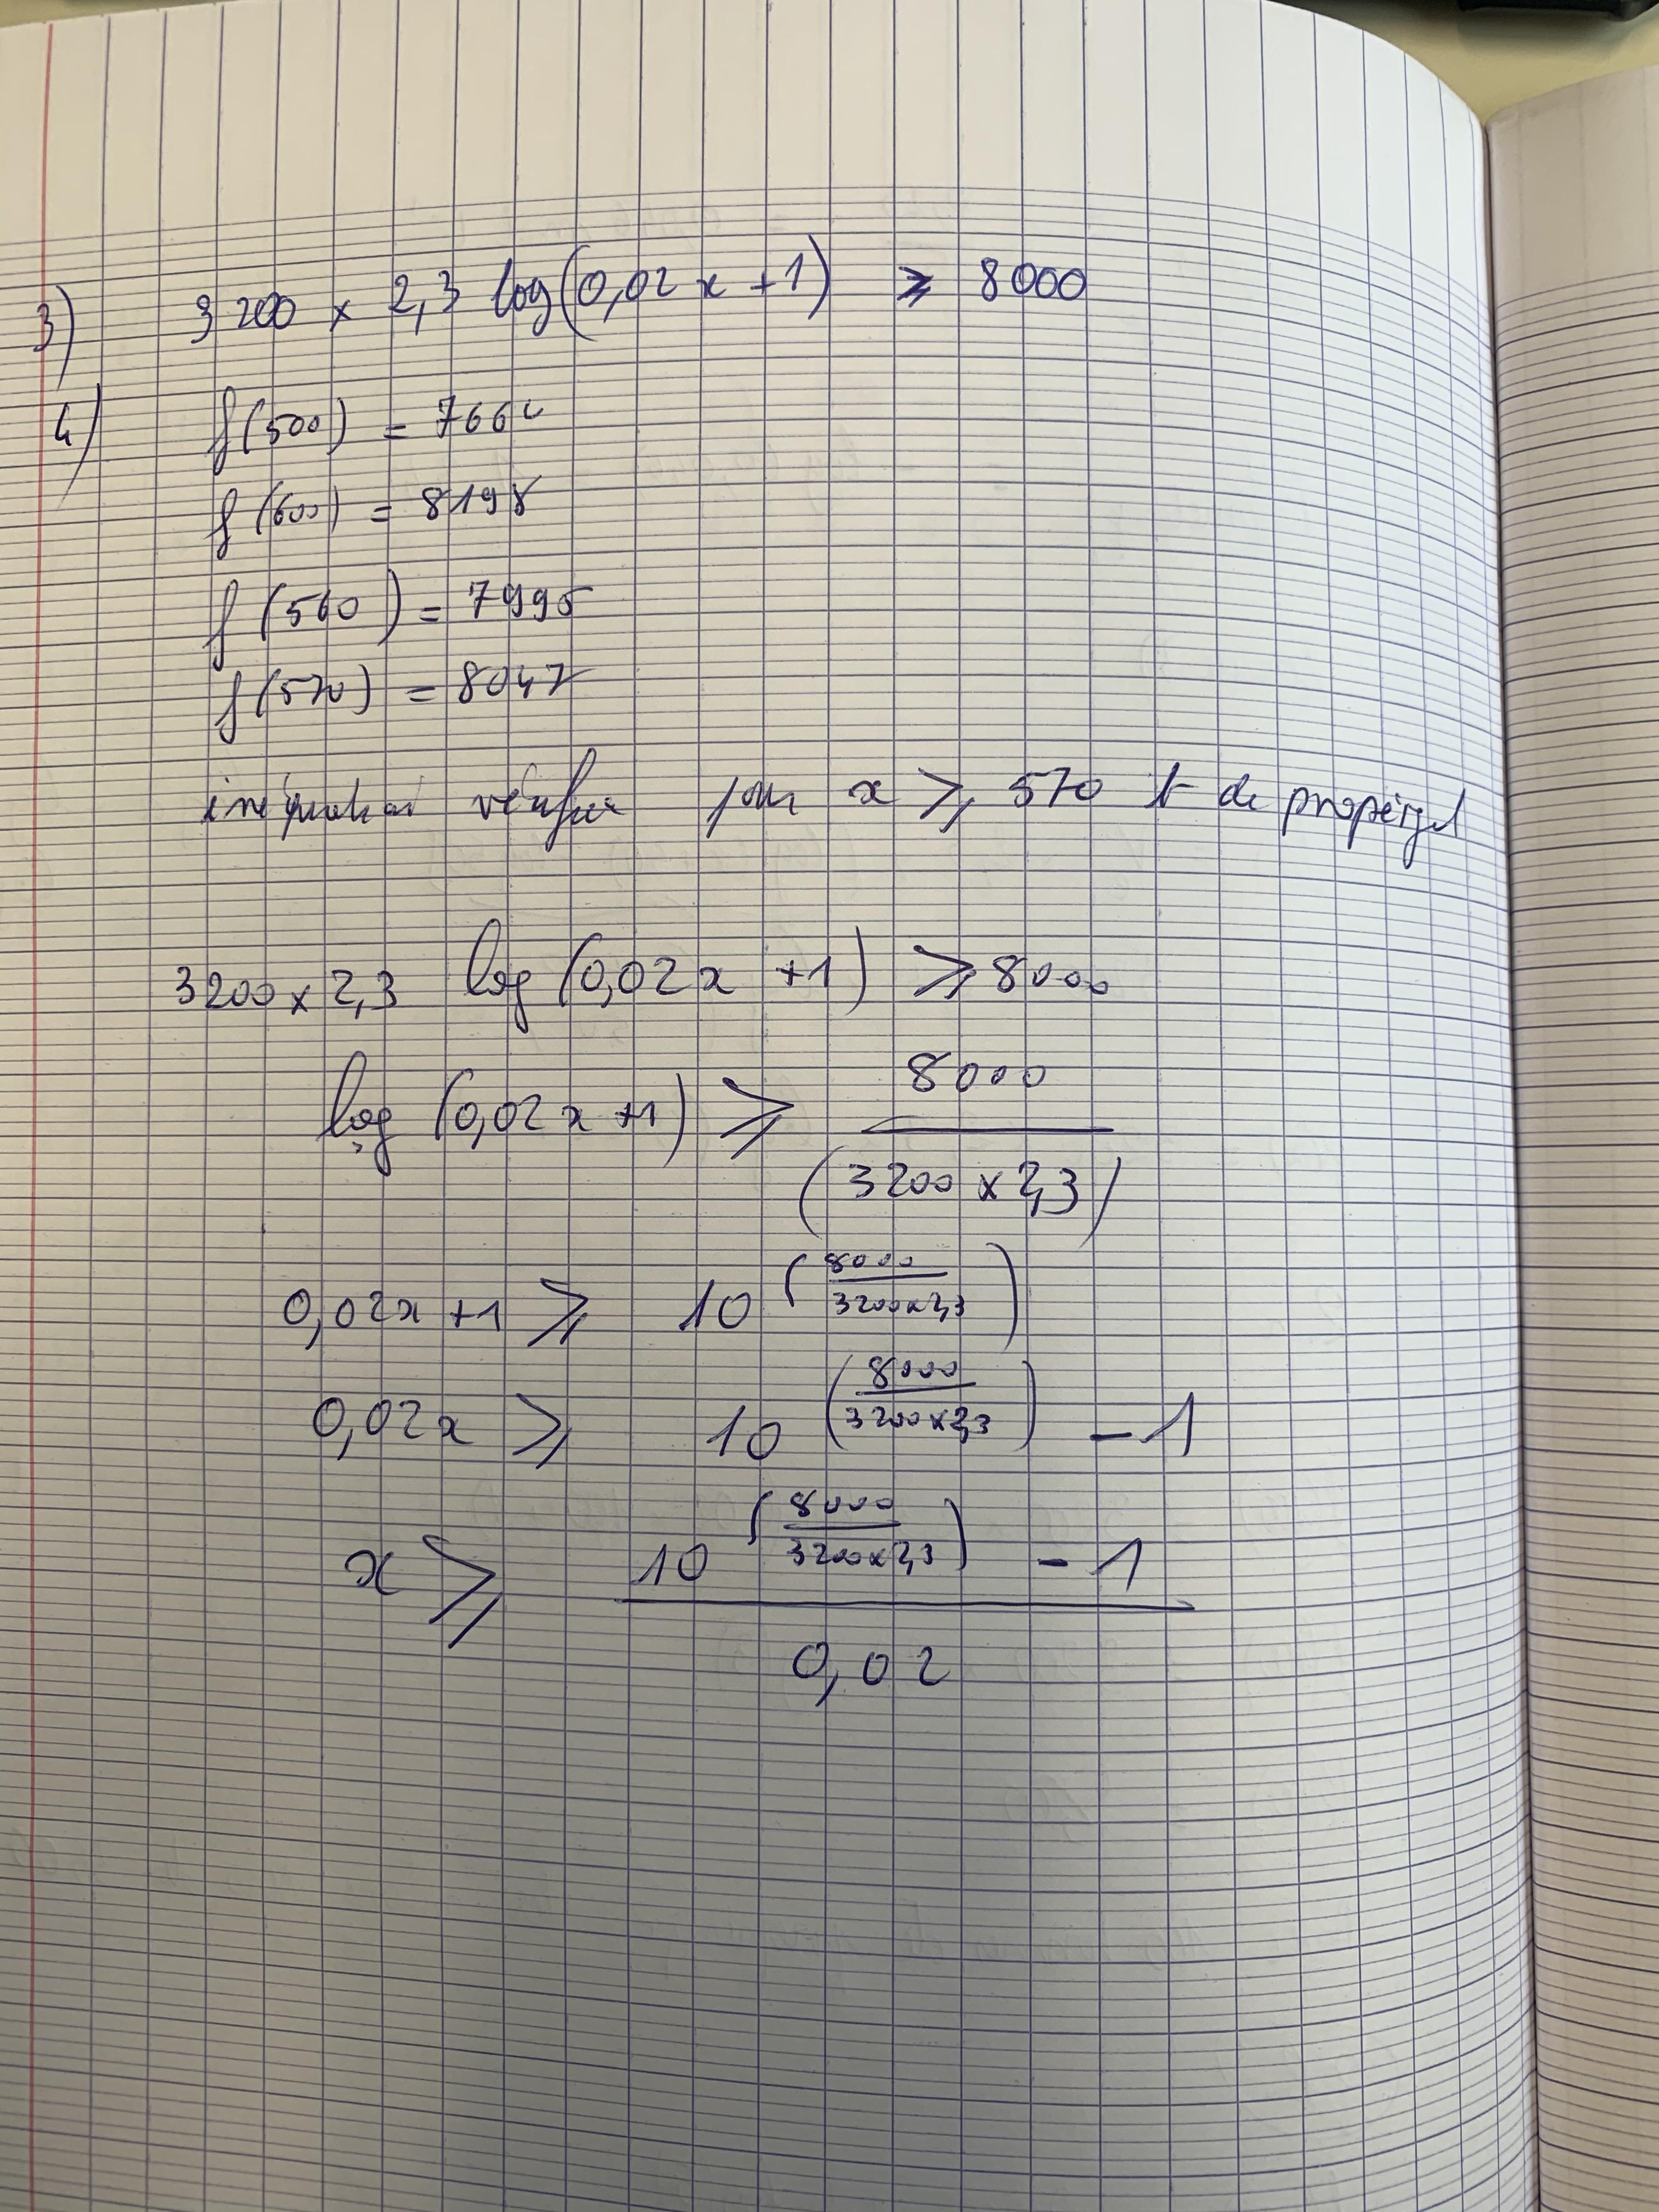 3) 3200 x 2,3 log(0,02x +1) ≥ 8000
4) f(500) = 7664
f(600) = 8198
f(560) = 7995
f(570) = 8047
inéquation vérifiée pour x ≥ 570 t de propergol
3200 x 2,3 log(0,02x +1) ≥ 8000
log (0,02x+1) ≥ 8000 / (3200 x 2,3)
0,02x +1 ≥ 10^(8000 / 3200x2,3)
0,02x ≥ 10^(8000 / 3200x2,3) - 1
x ≥ (10^(8000 / 3200x2,3) - 1) / 0,02